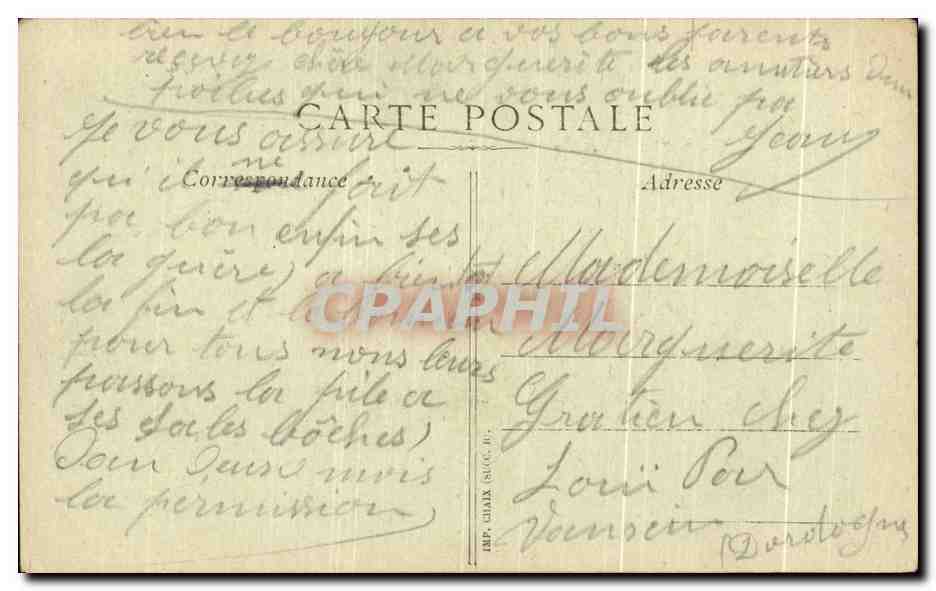 bien le bonjour a vos bons parents
recevez chère Marguerite les amitiers dun
poilus qui ne vous oublie pa
Jean
CARTE POSTALE
Je vous assure
Correspondance
Adresse
qu'il ne fait
pa bon enfin ses
la guère) a bientot
la fin et le
pour tous nous leurs
passons la pile a
ses sales bôches)
Dan deux mois
la permission
CPAPHIL
Mademoiselle
Marguerite
Gratien chez
Louï Par
Vanxein
(Dordogne
IMP. CHAIX (SUCC. B).